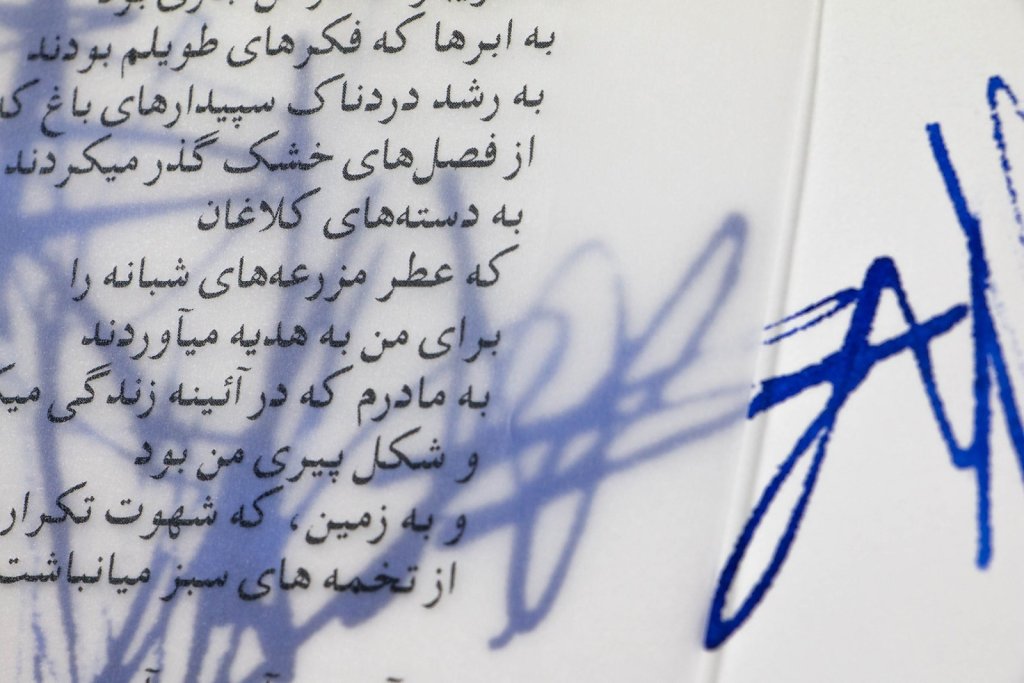 به ابرها که فکرهای طویلم بودند
به رشد دردناک سپیدارهای باغ که
از فصل‌های خشک گذر میکردند
به دسته‌های کلاغان
که عطر مزرعه‌های شبانه را
برای من به هدیه میآوردند
به مادرم که در آئینه زندگی
و شکل پیری من بود
و به زمین، که شهوت تکرار
از تخمه های سبز میانباشت